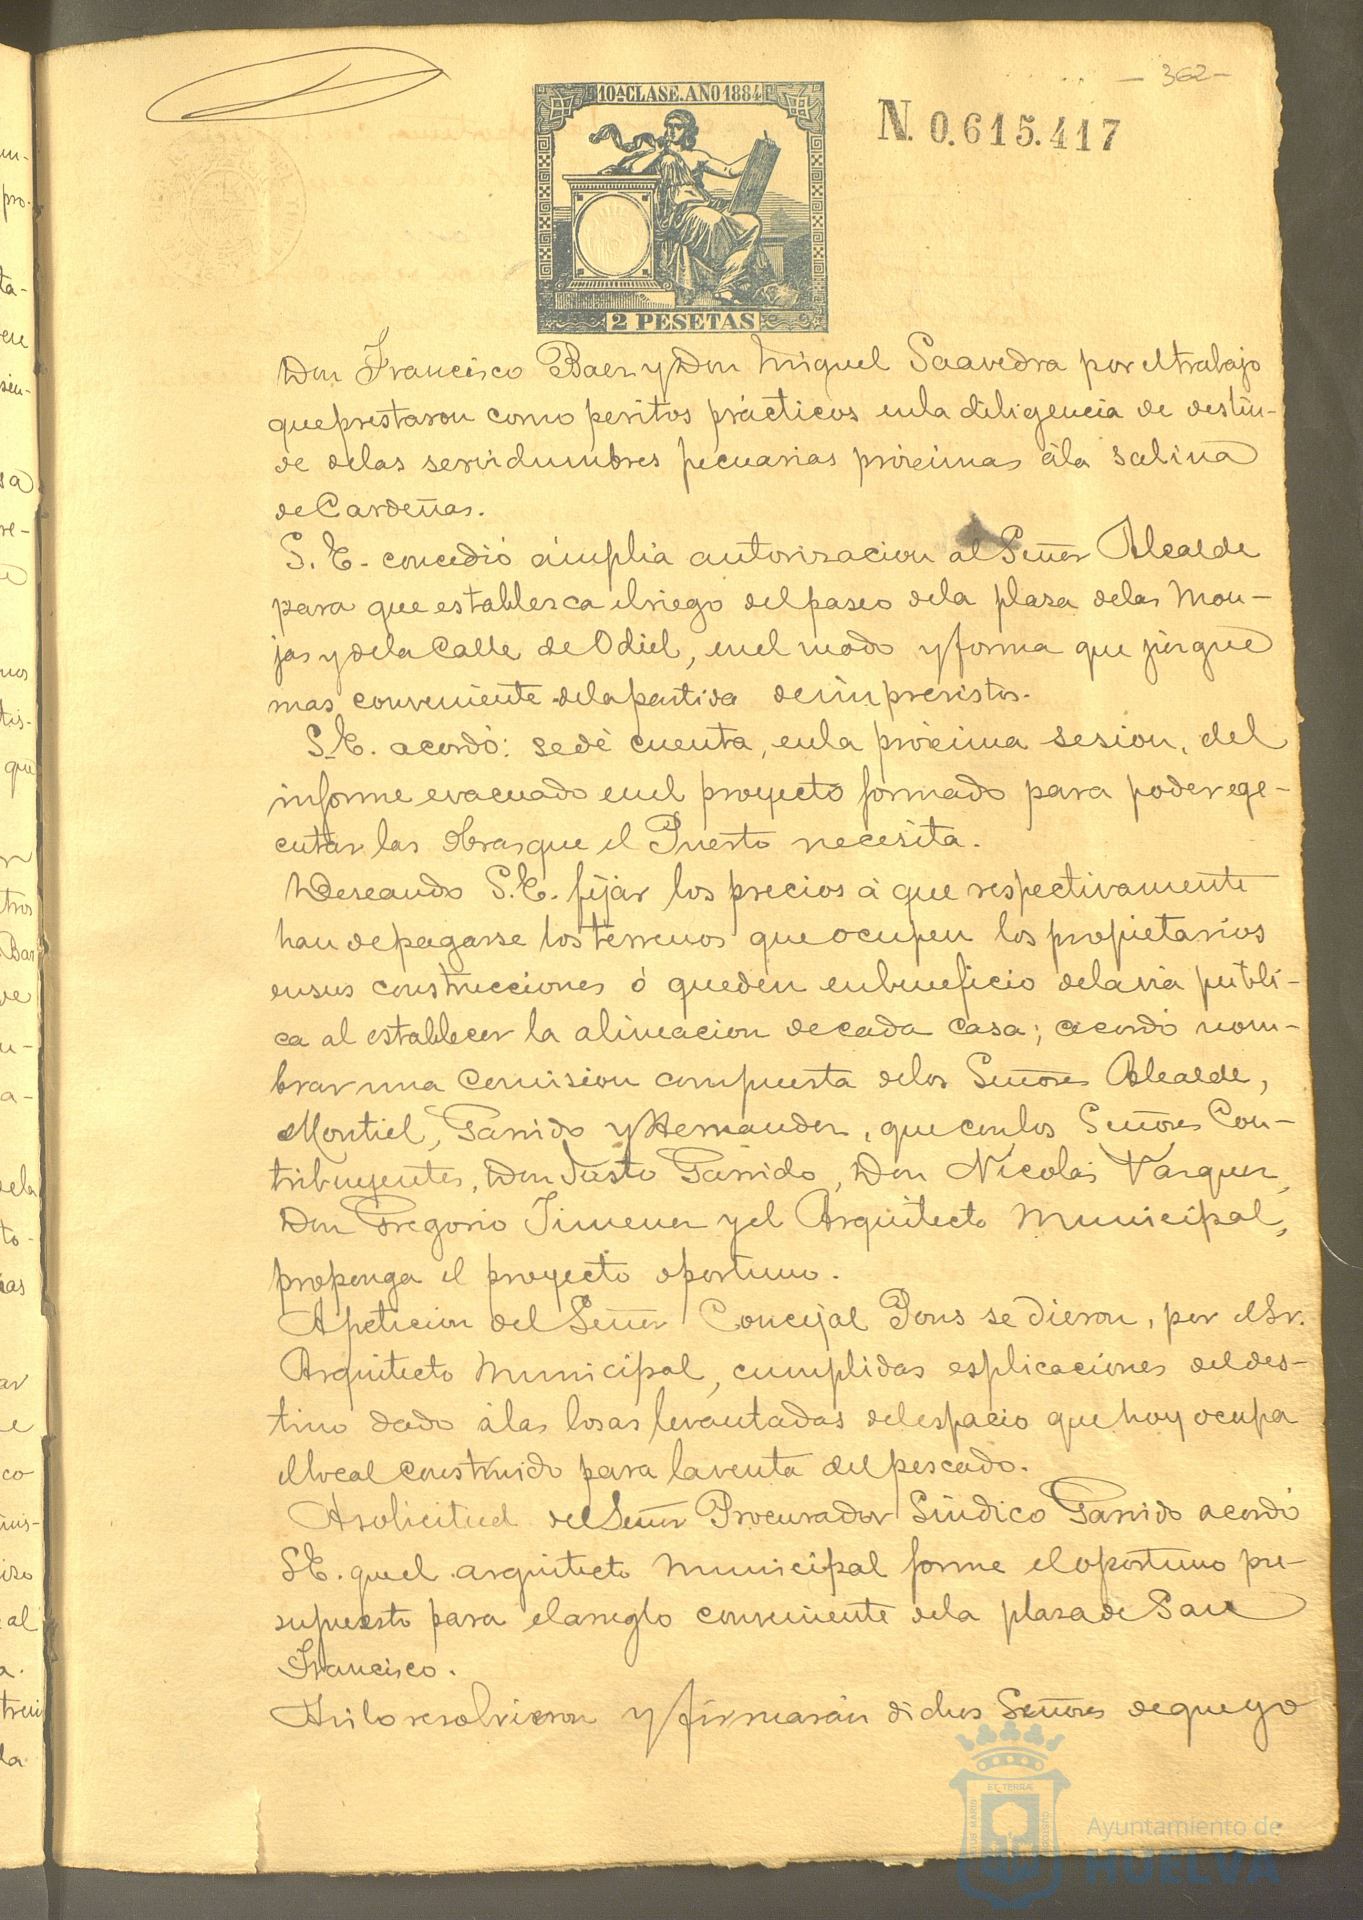 - 362 -
10ª CLASE. AÑO 1884
N. 0.615.417
2 PESETAS
Don Francisco Baez y Don Miguel Saavedra por el trabajo
que prestaron como peritos prácticos en la diligencia de deslin-
de de las servidumbres pecuarias próximas á la Salina
de Cardeñas.
S. E. concedió ámplia autorizacion al Señor Alcalde
para que establesca el riego del paseo de la plasa de las Mon-
jas y de la Calle de Odiel, en el modo y forma que júzgue
mas conveniente de la partida de imprevistos.
S. E. acordó: se dé cuenta, en la próxima sesion, del
informe evacuado en el proyecto formado para poder ege-
cutar las obras que el Puerto necesita.
Deseando S. E. fijar los precios á que respectivamente
han de pagarse los terrenos que ocupen los propietarios
en sus construcciones ó queden en beneficio de la via públi-
ca al establecer la alineacion de cada casa; acordó nom-
brar una Comision compuesta de los Señores Alcalde,
Montiel, Garrido y Hernandez, que con los Señores Con-
tribuyentes, Don Justo Garrido, Don Nicolás Vazquez,
Don Gregorio Jimenez y el Arquitecto Municipal,
proponga el proyecto oportuno.
A peticion del Señor Concejal Pons se dieron, por el Sr.
Arquitecto Municipal, cumplidas esplicaciones del des-
tino dado á las losas levantadas del espacio que hoy ocupa
el local construido para la venta del pescado.
A solicitud del Señor Procurador Síndico Garrido acordó
S. E. que el arquitecto Municipal forme el oportuno pre-
supuesto para el arreglo conveniente de la plasa de San
Francisco.
Asi lo resolvieron y firmarán dichos Señores de que yo
ET TERRÆ
Ayuntamiento de
HUELVA